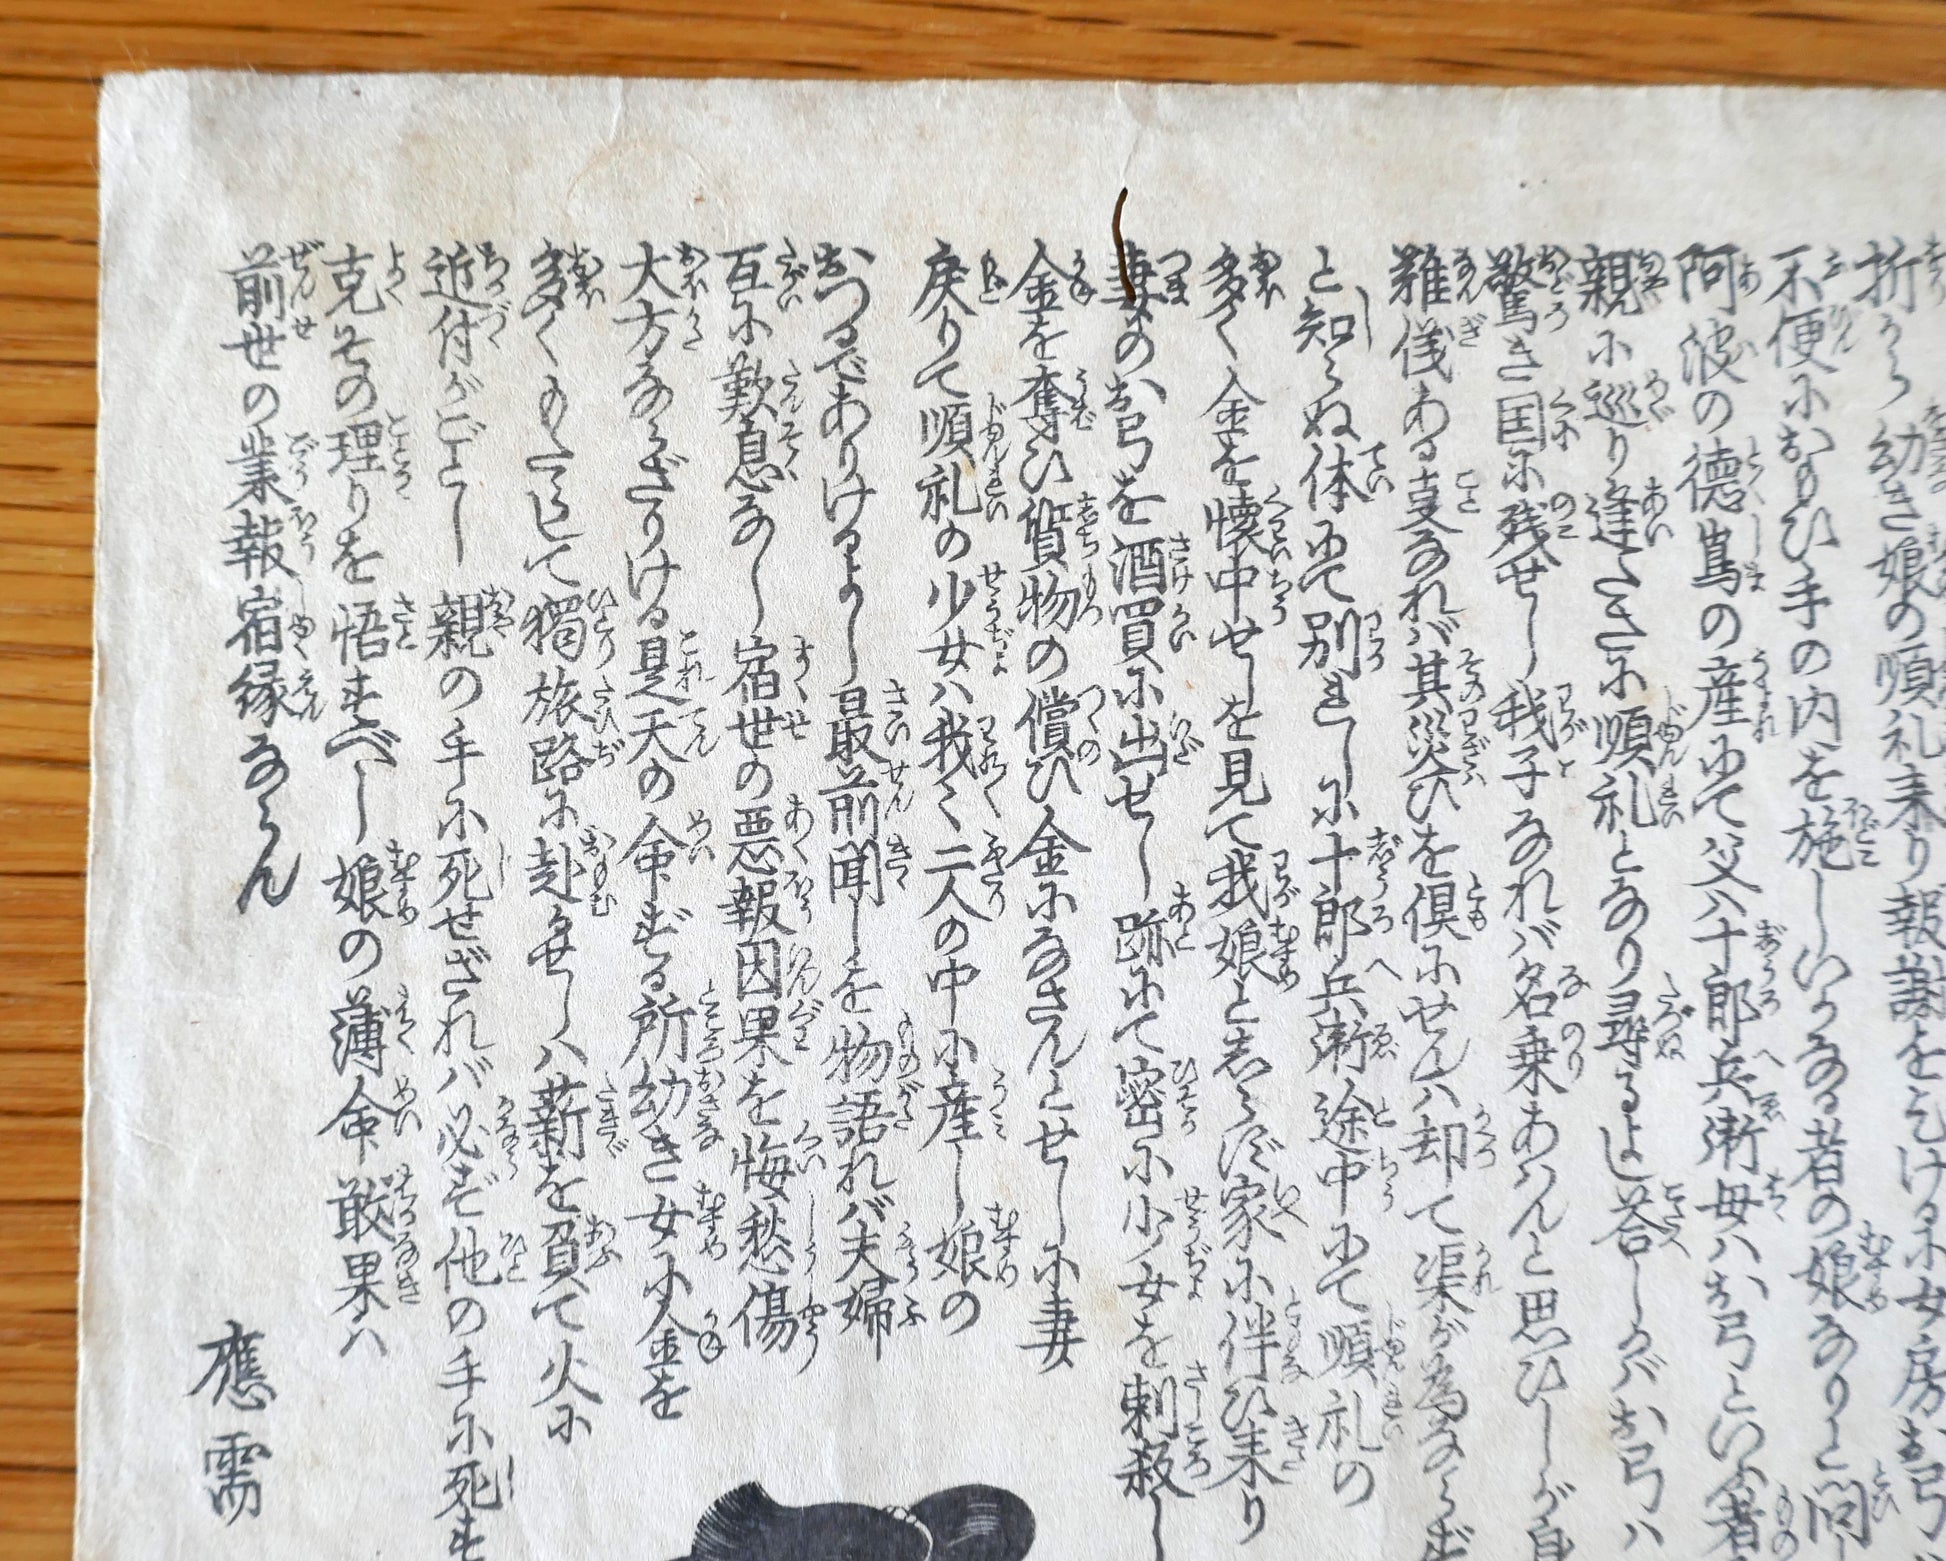 折から幼き娘の順礼来り報謝を乞けるに女房お弓
不便におもひ手の内を施しいかなる者の娘なりと問
阿波の徳嶌の産にて父ハ十郎兵衛母ハお弓といふ者
親に巡り逢たさに順礼となり尋るよし答しかバお弓ハ
驚き国に残せし我子なれバ名乗あハんと思ひしが身
難儀ある事なれバ其災ひを倶にせんハ却て渠が為ならず
と知らぬ体にて別れしに十郎兵衛途中にて順礼の
多く金を懐中せしを見て我娘と志らず家に伴ひ来り
妻のお弓を酒買に出せし跡にて密に小女を刺殺し
金を奪ひ質物の償ひ金になさんとせしに妻
戻りて順礼の少女ハ我々二人の中に産し娘の
おつるでありけるよし最前聞しを物語れバ夫婦
互に歎息なし宿世の悪報因果を悔愁傷
大方ならざりける是天の命ずる所幼き女に金を
多くもたらして獨旅路に赴かせしハ薪を負て火に
近付がごとし親の手に死せざれバ必ず他の手に死す
克其の理りを悟すべし娘の薄命敢果ハ
前世の業報宿縁ならん
應需